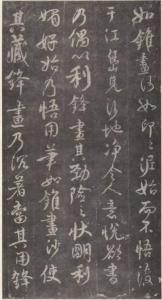 如錐畫沙如印印泥始而不悟後
于江島見沙地净令人意悅欲書
乃偶以利鋒畫其勁險之狀明利
媚好始乃悟用筆如錐畫沙使
其藏鋒畫乃沉著當其用鋒